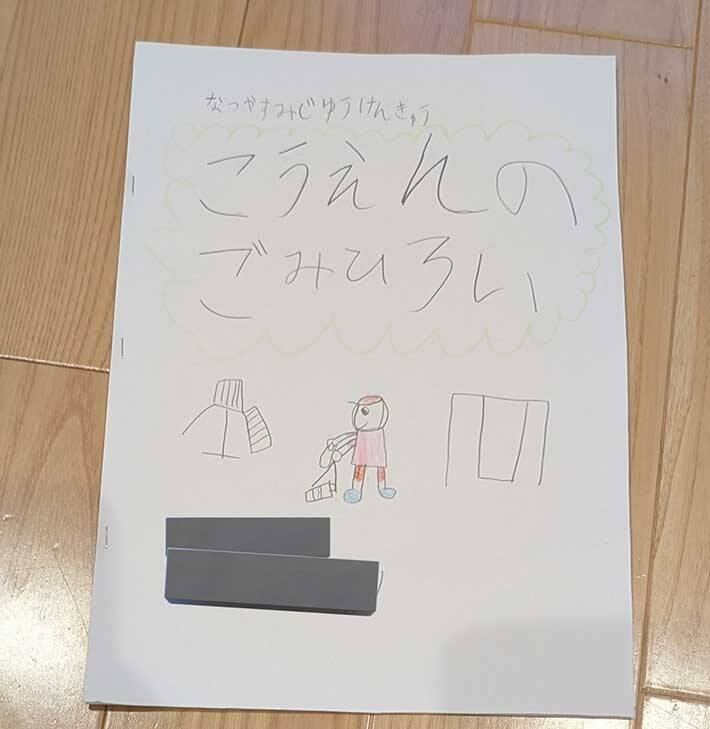 なつやすみじゆうけんきゅう
こうえんの
ごみひろい